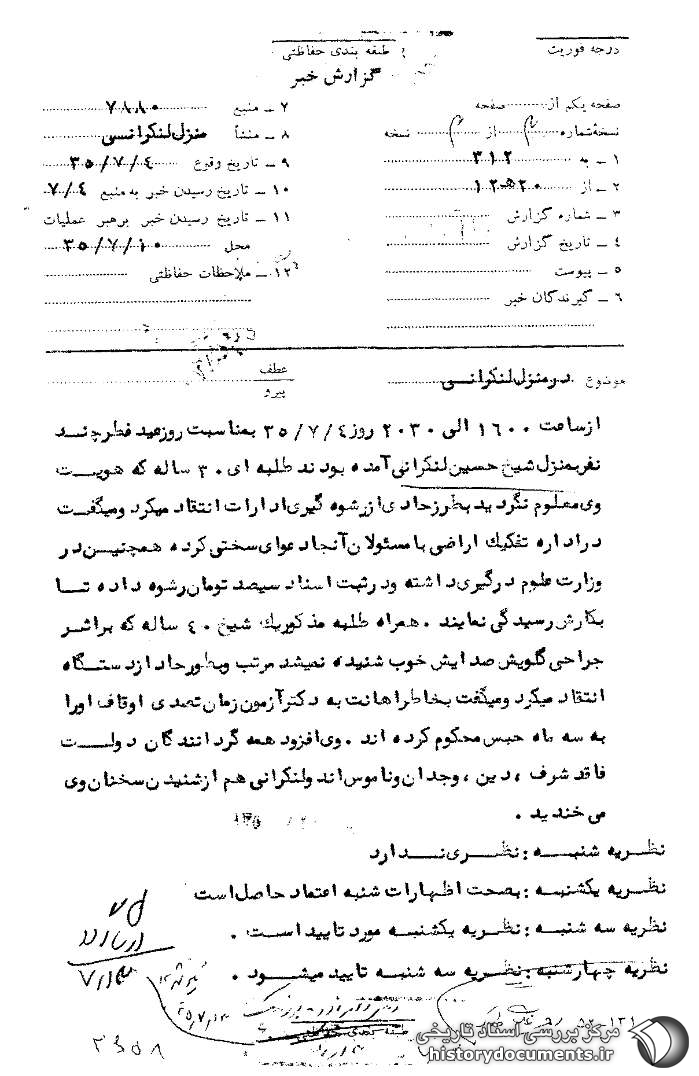 درجه فوریت
طبقه بندی حفاظتی
گزارش خبر
صفحه یکم از صفحه
نسخهٔ شماره از نسخه
۱ ــ به ۳۱۲
۲ ــ از ۲۰ه۱۲
۳ ــ شماره گزارش
۴ ــ تاریخ گزارش
۵ ــ پیوست
۶ ــ گیرندگان خبر
۷ ــ منبع ۷۸۸۰
۸ ــ منشأ منزل لنکرانی
۹ ــ تاریخ وقوع ۳۵/۷/۴
۱۰ ــ تاریخ رسیدن خبر به منبع ۷/۴
۱۱ ــ تاریخ رسیدن خبر برهبر عملیات
محل ۳۵/۷/۱۰
۱۲ ــ ملاحظات حفاظتی
موضوع در منزل لنکرانی
عطف
پیرو
از ساعت ۱۶۰۰ الی ۲۰۳۰ روز ۳۵/۷/۴ بمناسبت روز عید فطر چند
نفر بمنزل شیخ حسین لنکرانی آمده بودند طلبه ای ۳۰ ساله که هویت
وی معلوم نگردید بطرز حادی از رشوه گیری ادارات انتقاد میکرد و میگفت
در اداره تفکیک اراضی با مسئولان آنجا دعوای سختی کرده همچنین در
وزارت علوم درگیری داشته و در ثبت اسناد سیصد تومان رشوه داده تا
بکارش رسیدگی نمایند . همراه طلبه مذکور یک شیخ ۴۰ ساله که بر اثر
جراحی گلویش صدایش خوب شنیده نمیشد مرتب و بطور حاد از دستگاه
انتقاد میکرد و میگفت بخاطر اهانت به دکتر آزمون زمان تصدی اوقاف او را
به سه ماه حبس محکوم کرده اند . وی افزود همه گردانندگان دولت
فاقد شرف ، دین ، وجدان و ناموس اند و لنکرانی هم از شنیدن سخنان وی
می خندید .
نظریه شنبه : نظری ندارد
نظریه یکشنبه : بصحت اظهارات شنبه اعتماد حاصل است
نظریه سه شنبه : نظریه یکشنبه مورد تایید است .
نظریه چهارشنبه : نظریه سه شنبه تایید میشود .
طبقه بندی حفاظتی
مرکز بررسی اسناد تاریخی
historydocuments.ir